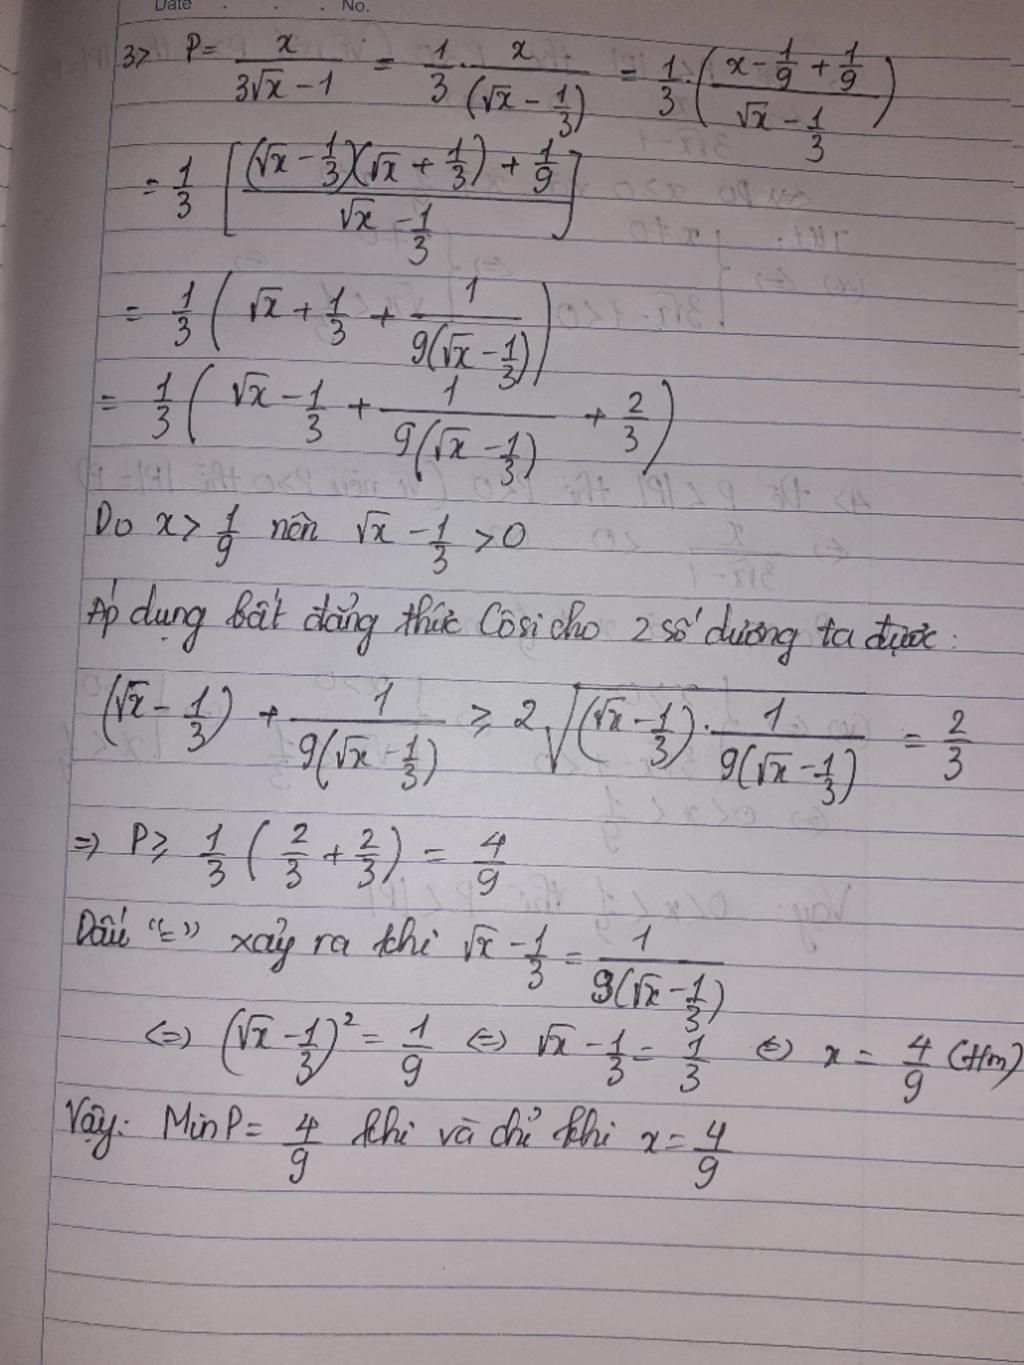 Date . . . No.
3> P = x/(3√x - 1) = 1/3 · x/(√x - 1/3) = 1/3 · ((x - 1/9 + 1/9)/(√x - 1/3))
= 1/3 [((√x - 1/3)(√x + 1/3) + 1/9)/(√x - 1/3)]
= 1/3 (√x + 1/3 + 1/(9(√x - 1/3)))
= 1/3 (√x - 1/3 + 1/(9(√x - 1/3)) + 2/3)
Do x > 1/9 nên √x - 1/3 > 0
Áp dụng bất đẳng thức Côsi cho 2 số dương ta được:
(√x - 1/3) + 1/(9(√x - 1/3)) ⩾ 2√((√x - 1/3) · 1/(9(√x - 1/3))) = 2/3
=> P ⩾ 1/3 (2/3 + 2/3) = 4/9
Dấu "=" xảy ra khi √x - 1/3 = 1/(9(√x - 1/3))
<=> (√x - 1/3)² = 1/9 <=> √x - 1/3 = 1/3 <=> x = 4/9 (tm)
Vậy: Min P = 4/9 khi và chỉ khi x = 4/9